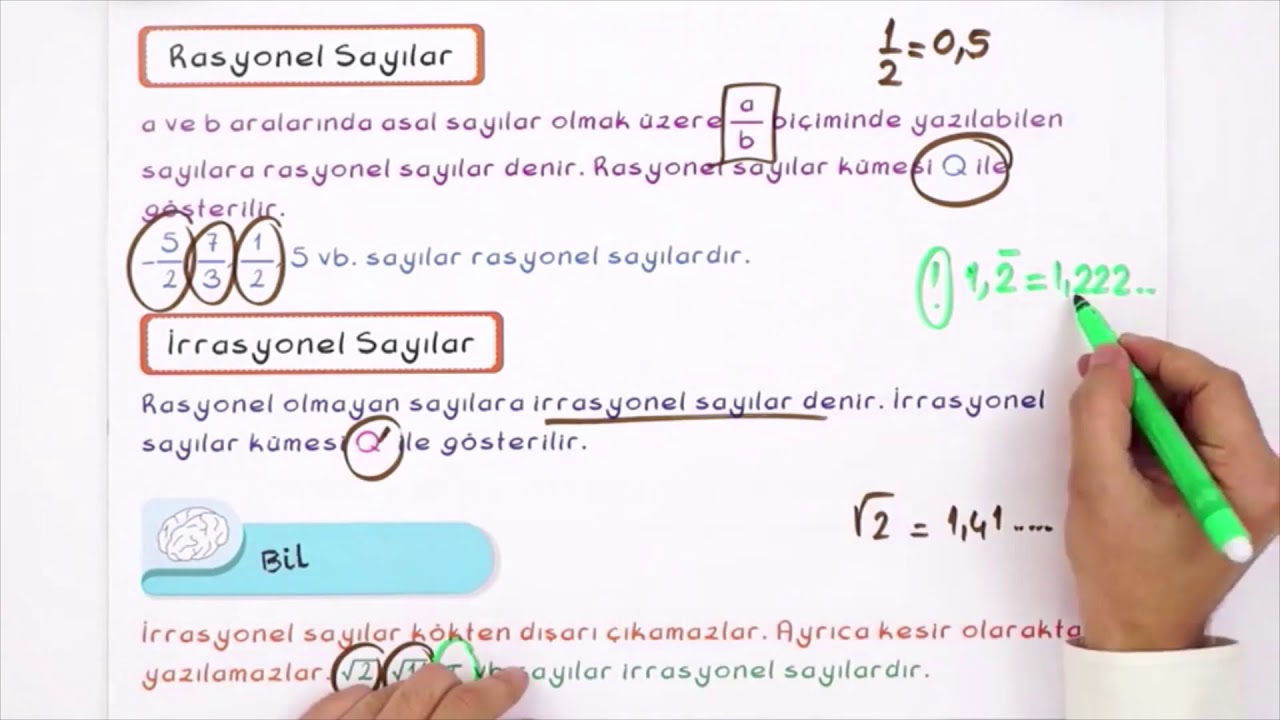 Rasyonel Sayılar
1/2 = 0,5
a ve b aralarında asal sayılar olmak üzere a/b biçiminde yazılabilen
sayılara rasyonel sayılar denir. Rasyonel sayılar kümesi Q ile
gösterilir.
-5/2, 7/3, 1/2, 5 vb. sayılar rasyonel sayılardır.
! 1,2̅ = 1,222..
İrrasyonel Sayılar
Rasyonel olmayan sayılara irrasyonel sayılar denir. İrrasyonel
sayılar kümesi Q' ile gösterilir.
√2 = 1,41.....
Bil
İrrasyonel sayılar kökten dışarı çıkamazlar. Ayrıca kesir olarakta
yazılamazlar. √2 vb sayılar irrasyonel sayılardır.